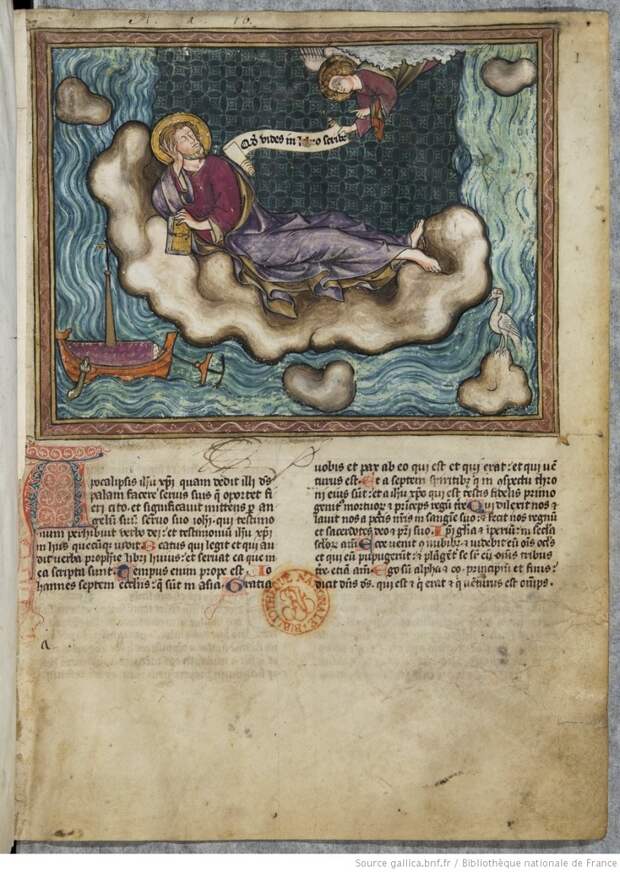 Qð vides in libro scribe
1
Apocalipsis ihu xpi quam dedit illi ds
palam facere servis suis q oportet fi
eri cito. et significavit mittens p an
gelu suu servo suo iohi. qui testimo
nium perhibuit verbo dei: et testimoniu ihu xpi
in hiis quecuq vidit Beatus qui legit et qui au
dit verba prophie libri huius: et servat ea que in
ea scripta sunt. Tempus enim prope est. Jo
hannes septem ecclus. q sut in asia. Gratia
vobis et pax ab eo qui est et qui erat: et qui ve
turus est. Et a septem spiritibz q in conspectu thro
ni eius sut: et a ihu xpo qui est testis fidelis primo
genit mortuoz et princeps regu tre Qui dilexit nos et
lavit nos a pctis nris in sangue suo: et fecit nos regnu
et sacerdotes deo et pri suo. Ipi gla et imperiu: in secla
seloz. am. Ecce veniet in nubibz et videbit eu ois ocls
et qui eu pupugerut: et plaget se se eu ois tribus
tre etia am. Ego su alpha et ω. principiu et finis:
dicit dns ds. qui est et q erat et q veturus est omps.
a
BIBLIOTHEQUE NATIONALE
Source gallica.bnf.fr / Bibliothèque nationale de France